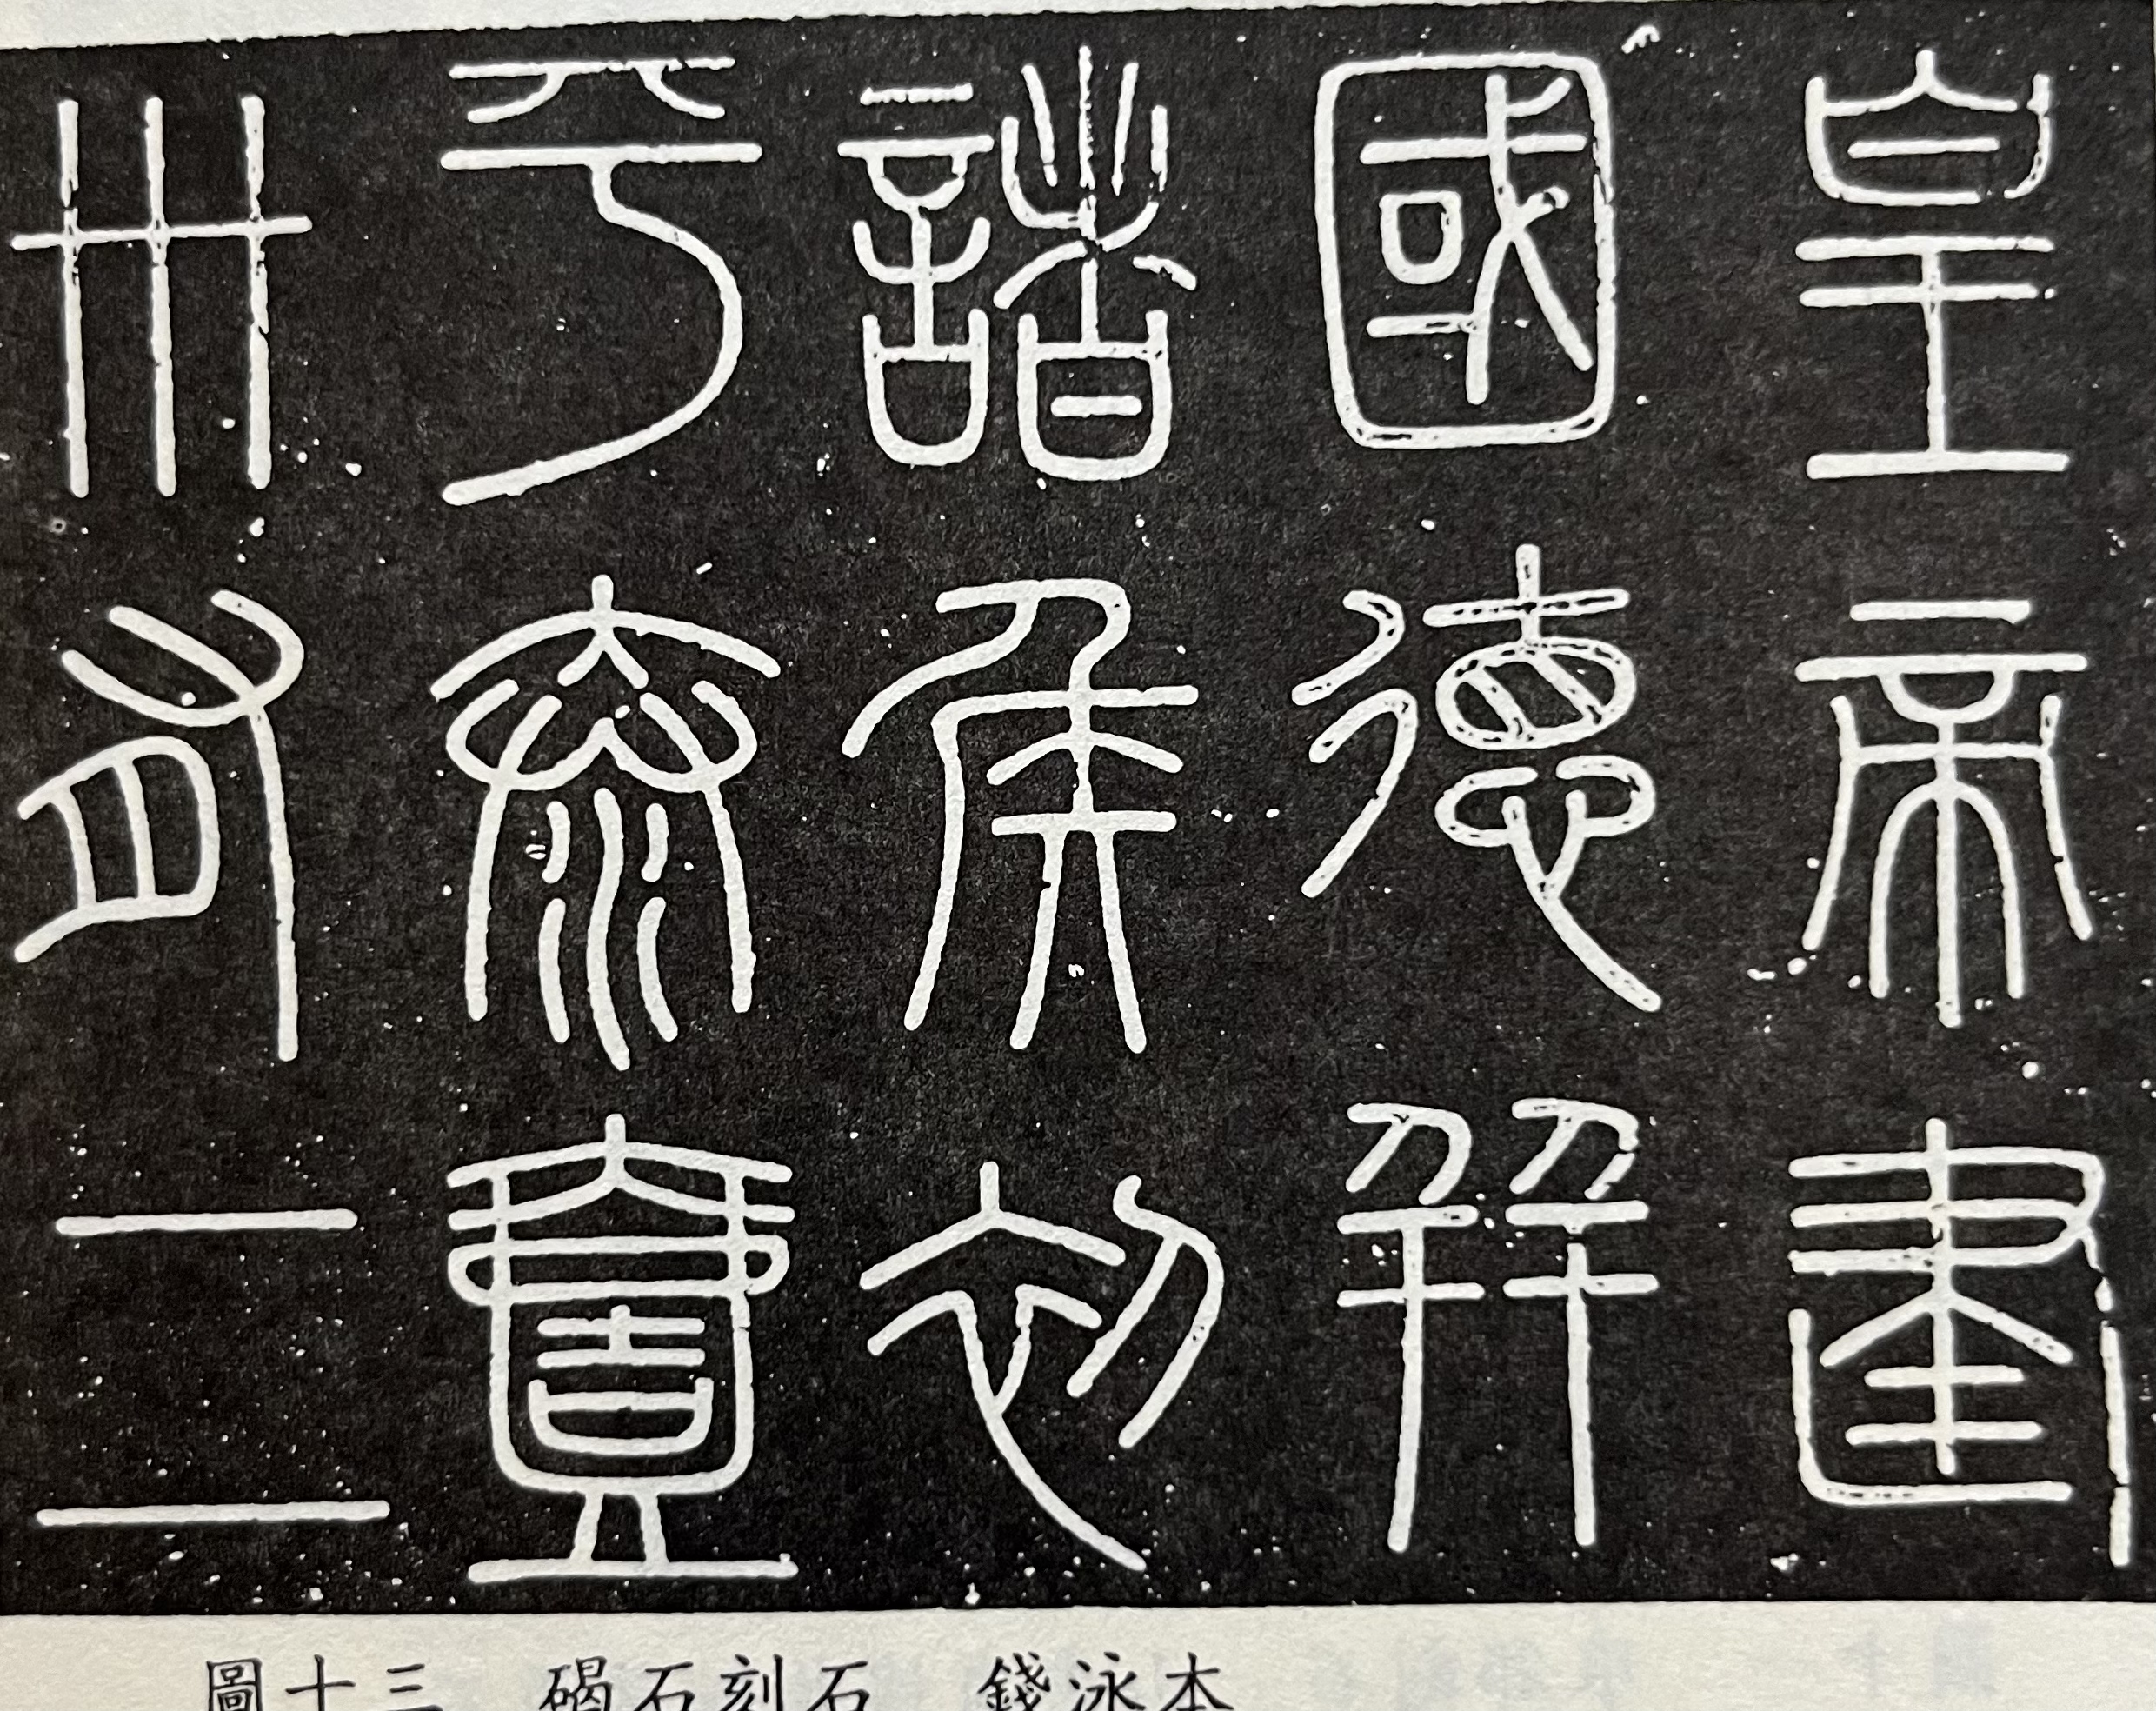 皇帝建
國德并
諸侯初
平泰壹
卅有二
圖十三　碣石刻石　錢泳本